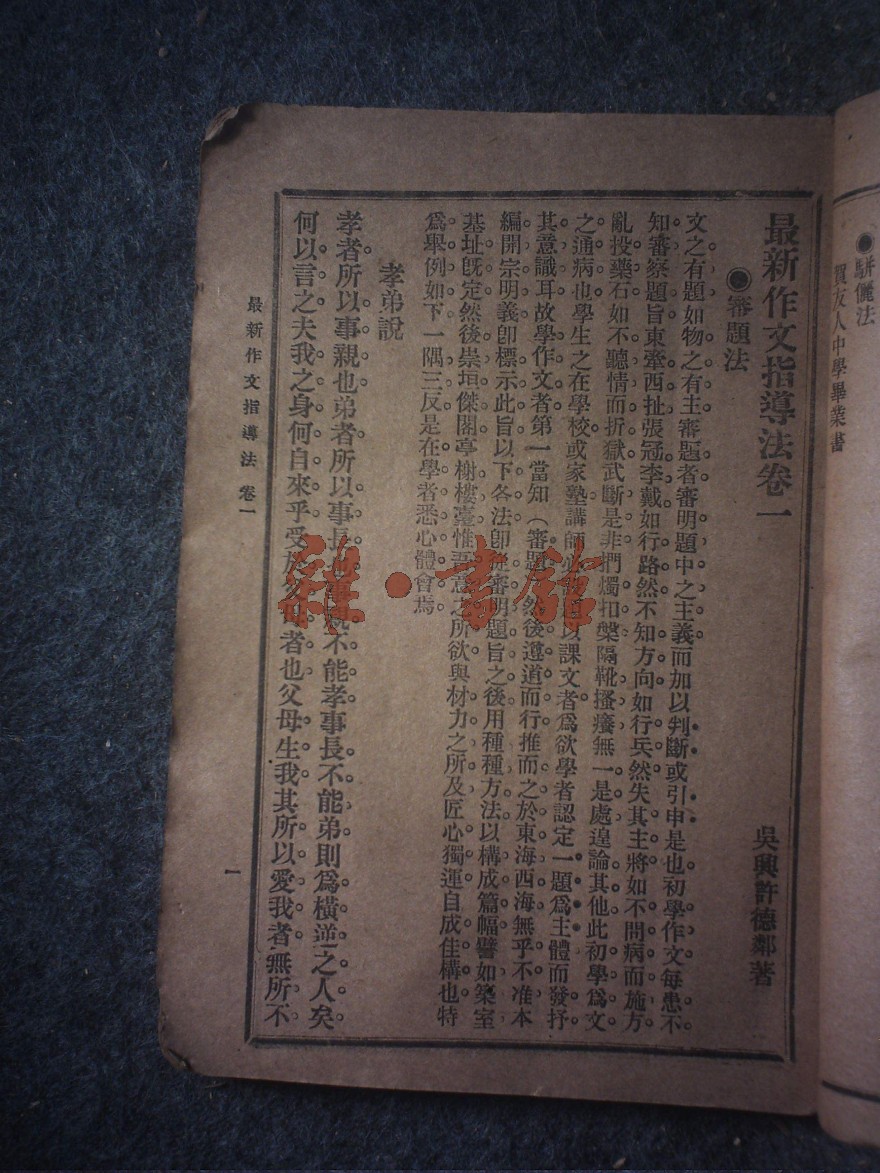 駢儷法
賀友人中學畢業書
最新作文指導法卷一
吳興許德鄰著
審題法
文之有題如物之有主審題者審明題中之主義而加以判斷或引申是也初學作文每患不
知審察題旨東牽西扯張冠李戴如行路然不知方向如行兵然失其主將如不問病而施方
亂投藥石如不聽情而折獄武斷是非捫燭扣槃隔靴搔癢無一是處遑論其他此初學爲文
之通病也學生之在學校或家塾講師必以課文者爲欲學者認定一題爲主體而發抒
其意識耳故學作文者第一當知（審題）然後遵道而行推而之於東海西海無乎不准本
編開宗明義卽標示此旨以下各法卽從審明題旨之後用種種方法以構成篇幅譬如築室
基址旣定然後崇垣傑閣亭榭樓臺惟吾意之所欲與材力之所及匠心獨運自成佳構也特
爲舉例如下一隅三反是在學者悉心體會焉
孝弟說
孝者所以事親也弟者所以事長也事親不能孝事長不能弟則爲橫逆之人矣
何以言之夫我之身何自來乎受於父母者也父母生我其所以愛我者無所不
最新作文指導法 卷一
一
雜·書館